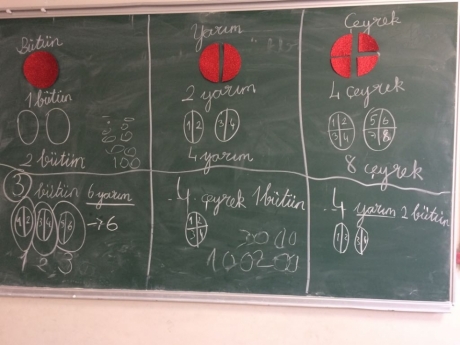 Bütün
1 bütün
2 bütün
100
Yarım
2 yarım
1 2 3 4
4 yarım
Çeyrek
4 çeyrek
1 2 5 6
3 4 7 8
8 çeyrek
3 bütün 6 yarım
1 2 3 4 5 6 → 6
1 2 3
4 çeyrek 1 bütün
1 2
3 4
100200
..4 yarım 2 bütün
1 2 3 4